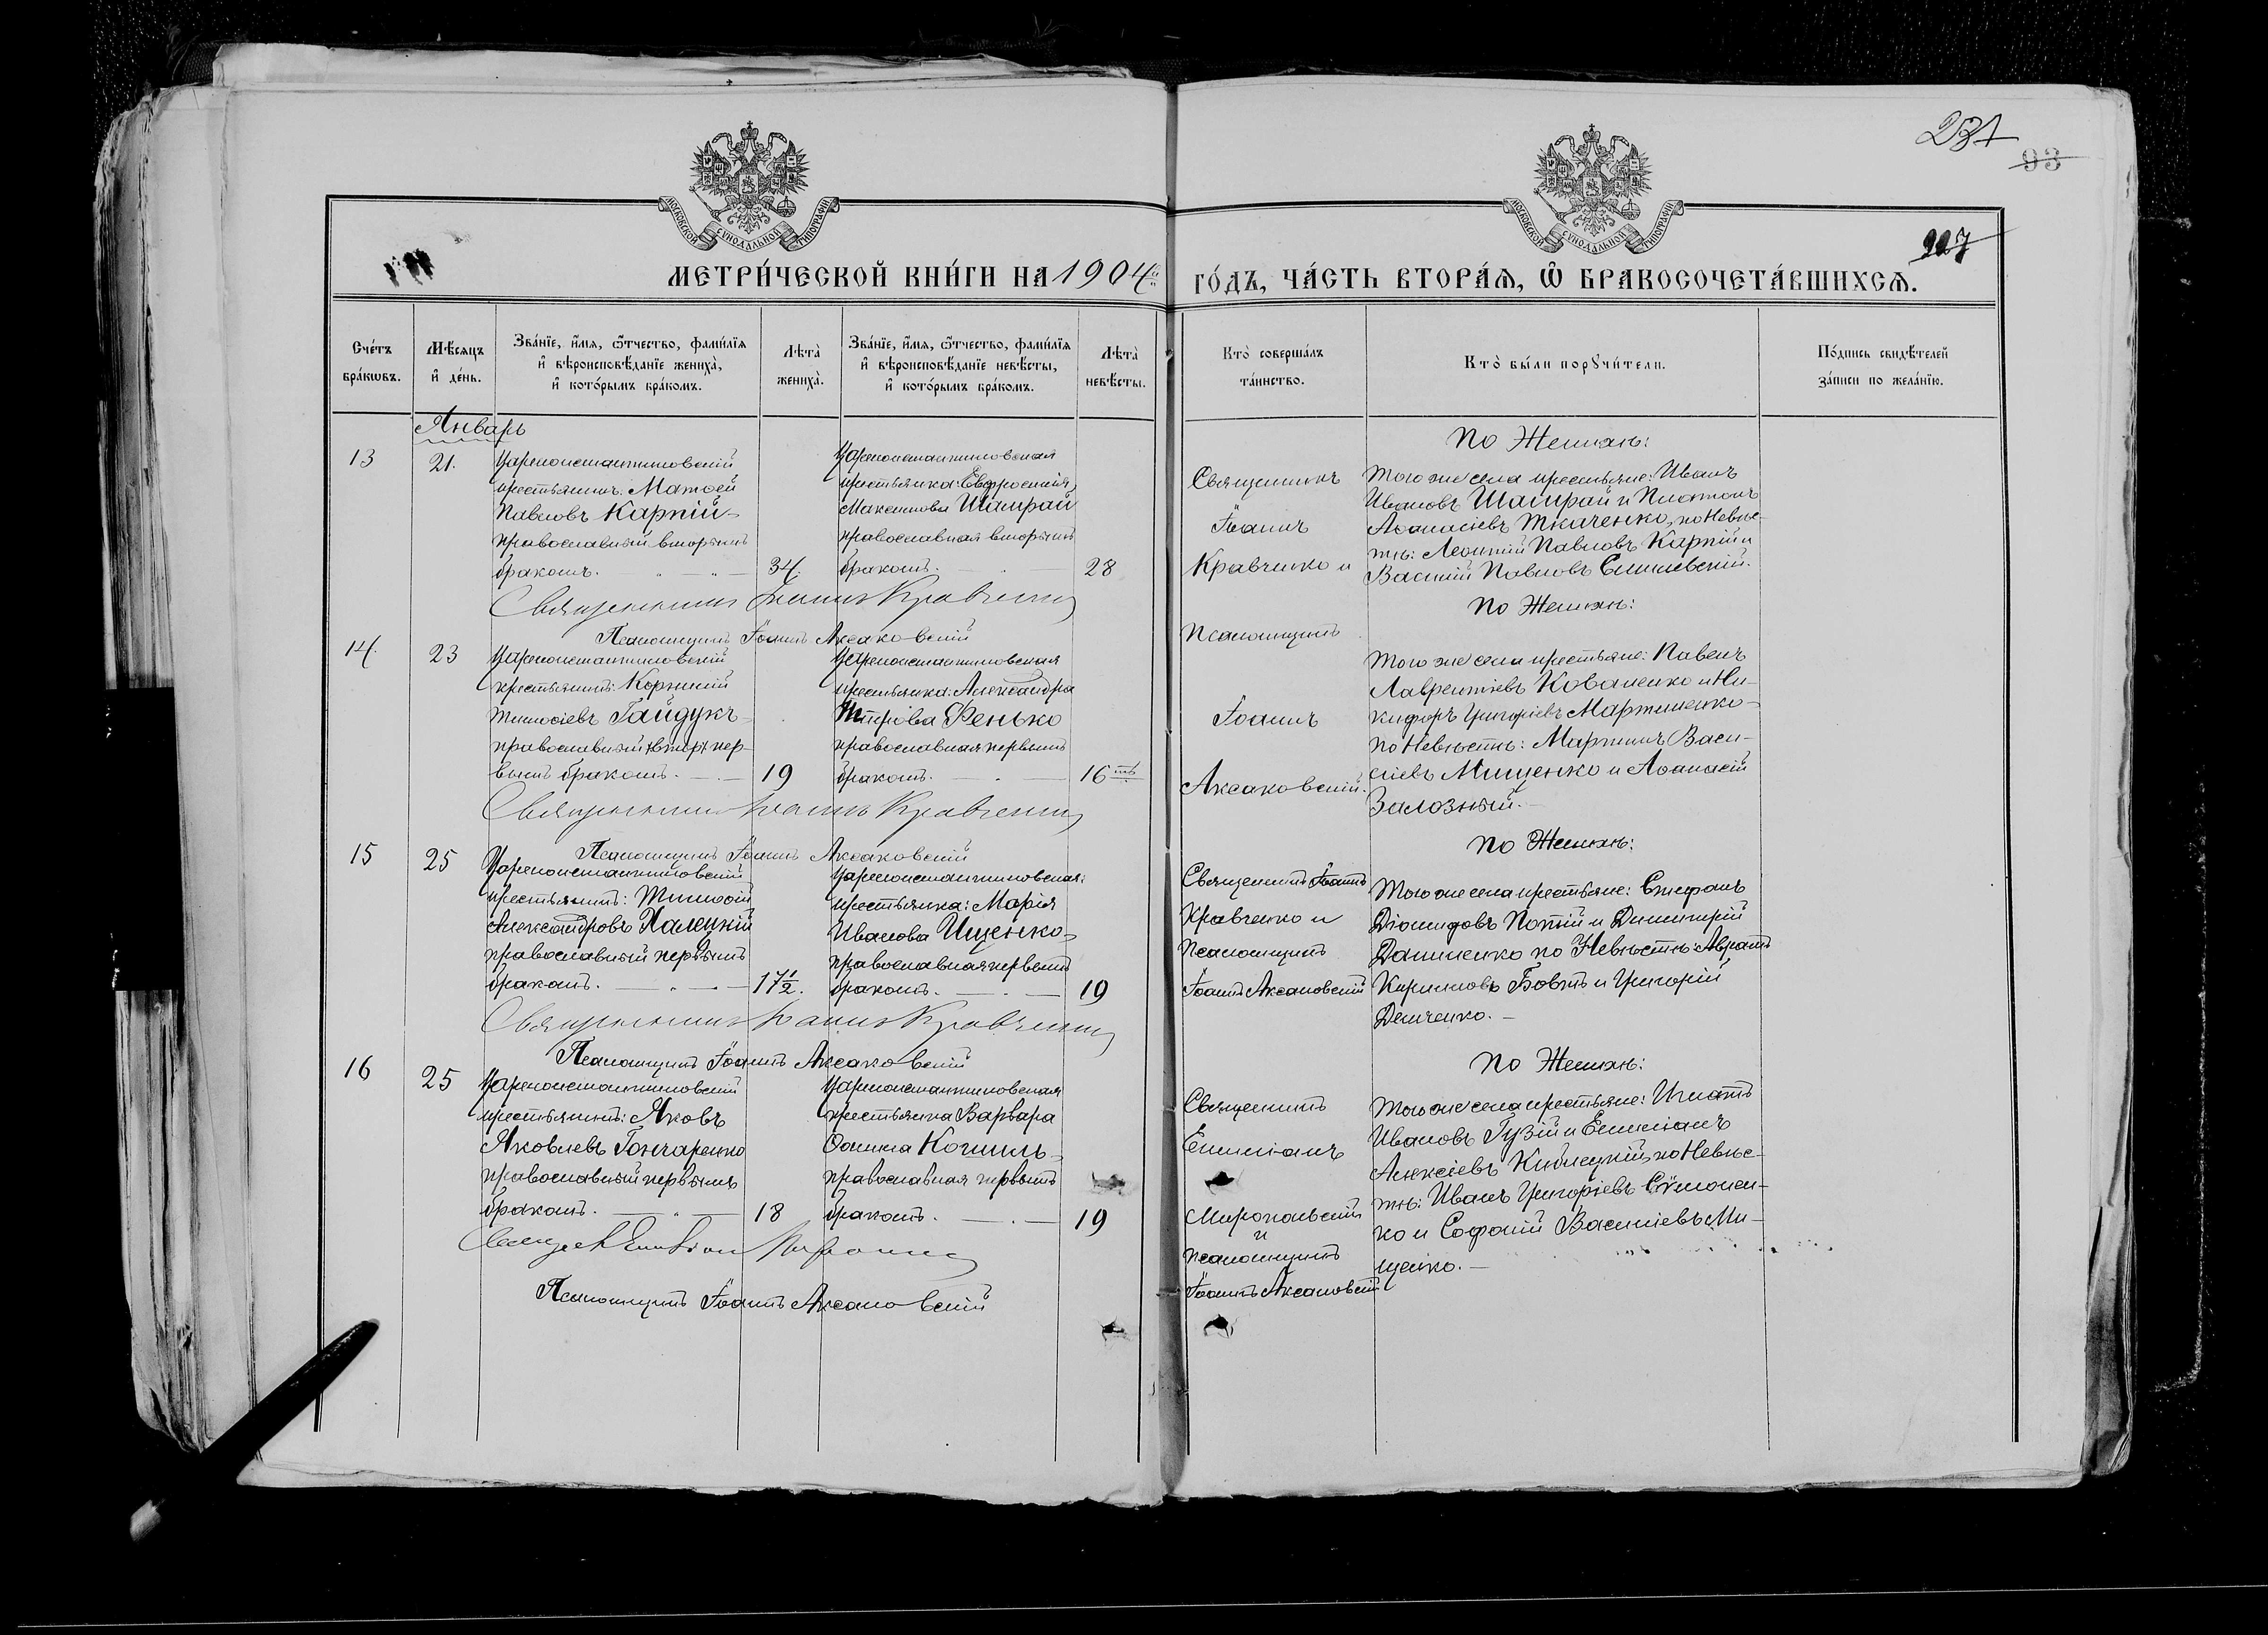 231
93
МОСКОВСКОЙ СѴНОДАЛЬНОЙ ТИПОГРАФІИ
МОСКОВСКОЙ СѴНОДАЛЬНОЙ ТИПОГРАФІИ
227
МЕТРИ́ЧЕСКОЙ КНИ́ГИ НА 1904й
ГО́ДЪ, ЧА́СТЬ ВТОРА́Ѧ, Ѽ БРАКОСОЧЕТА́ВШИХСѦ.
Сче́тъ бра́кѡвъ.
Мѣ́сяцъ и҆ де́нь.
Зва́нїе, и҆́мя, ѻ҆́тчество, фами́лїя и҆ вѣроисповѣ́данїе жениха̀, и҆ кото́рымъ бра́комъ.
Лѣта̀ жениха̀.
Зва́нїе, и҆́мя, ѻ҆́тчество, фами́лїя и҆ вѣроисповѣ́данїе невѣ́сты, и҆ кото́рымъ бра́комъ.
Лѣта̀ невѣ́сты.
Кто̀ соверша́лъ та́инство.
Кто̀ бы́ли порꙋчи́тели.
По́дпись свидѣ́телей за́писи по жела́нїю.
Январь
13
21.
Цареконстантиновскій
крестьянинъ: Матѳей
Павловъ Карпій
православный вторымъ
бракомъ.
34.
Цареконстантиновская
крестьянка: Евфросинія
Максимова Шамрай
православная вторымъ
бракомъ.
28
Священникъ
Іоаннъ
Кравченко и
По Женихѣ:
Того же села крестьяне: Иванъ
Ивановъ Шамрай и Платонъ
Аѳанасіевъ Ткаченко, по Невѣс-
тѣ: Леонтій Павловъ Карпій и
Василій Павловъ
Священникъ Іоаннъ Кравченко
Псаломщикъ Іоаннъ Аксаковскій
14.
23
Цареконстантиновскій
крестьянинъ: Корнилій
Тимоѳіевъ Гайдукъ
православный пер-
вымъ бракомъ.
19
Цареконстантиновская
крестьянка: Александра
Фенько
православная первымъ
бракомъ.
16 ть
Псаломщикъ
Іоаннъ
Аксаковскій.
По Женихѣ:
Того же села крестьяне: Павелъ
Лаврентіевъ Коваленко и Ни-
кифоръ Григоріевъ Мартыненко
по Невѣстѣ: Мартинъ Васи-
ліевъ Мищенко и Аѳанасій
Залозный.
Священникъ Іоаннъ Кравченко
Псаломщикъ Іоаннъ Аксаковскій
15
25
Цареконстантиновскій
крестьянинъ: Тимоѳій
Александровъ Халецкій
православный первымъ
бракомъ.
17½.
Цареконстантиновская
крестьянка: Марія
Иванова Ищенко
православная первымъ
бракомъ.
19
Священникъ Іоаннъ
Кравченко и
Псаломщикъ
Іоаннъ Аксаковскій
По Женихѣ:
Того же села крестьяне: Стефанъ
Діомидовъ Попій и Димитрій
Даниленко по Невѣстѣ: Аврамъ
Кирилловъ Бовтъ и Григорій
Демченко.
Священникъ Іоаннъ Кравченко
Псаломщикъ Іоаннъ Аксаковскій
16
25
Цареконстантиновскій
крестьянинъ: Яковъ
Яковлевъ Гончаренко
православный первымъ
бракомъ.
18
Цареконстантиновская
крестьянка Варвара
Ѳомина
православная первымъ
бракомъ.
19
Священникъ
Емиліанъ
Миропольскій
и
псаломщикъ
Іоаннъ Аксаковскій
По Женихѣ:
Того же села крестьяне: Игнатъ
Ивановъ Гузій и Емиліанъ
Алексіевъ по Невѣс-
тѣ: Иванъ Григоріевъ Сѵмонен-
ко и Софоній Василіевъ Ми-
щенко.
Псаломщикъ Іоаннъ Аксаковскій